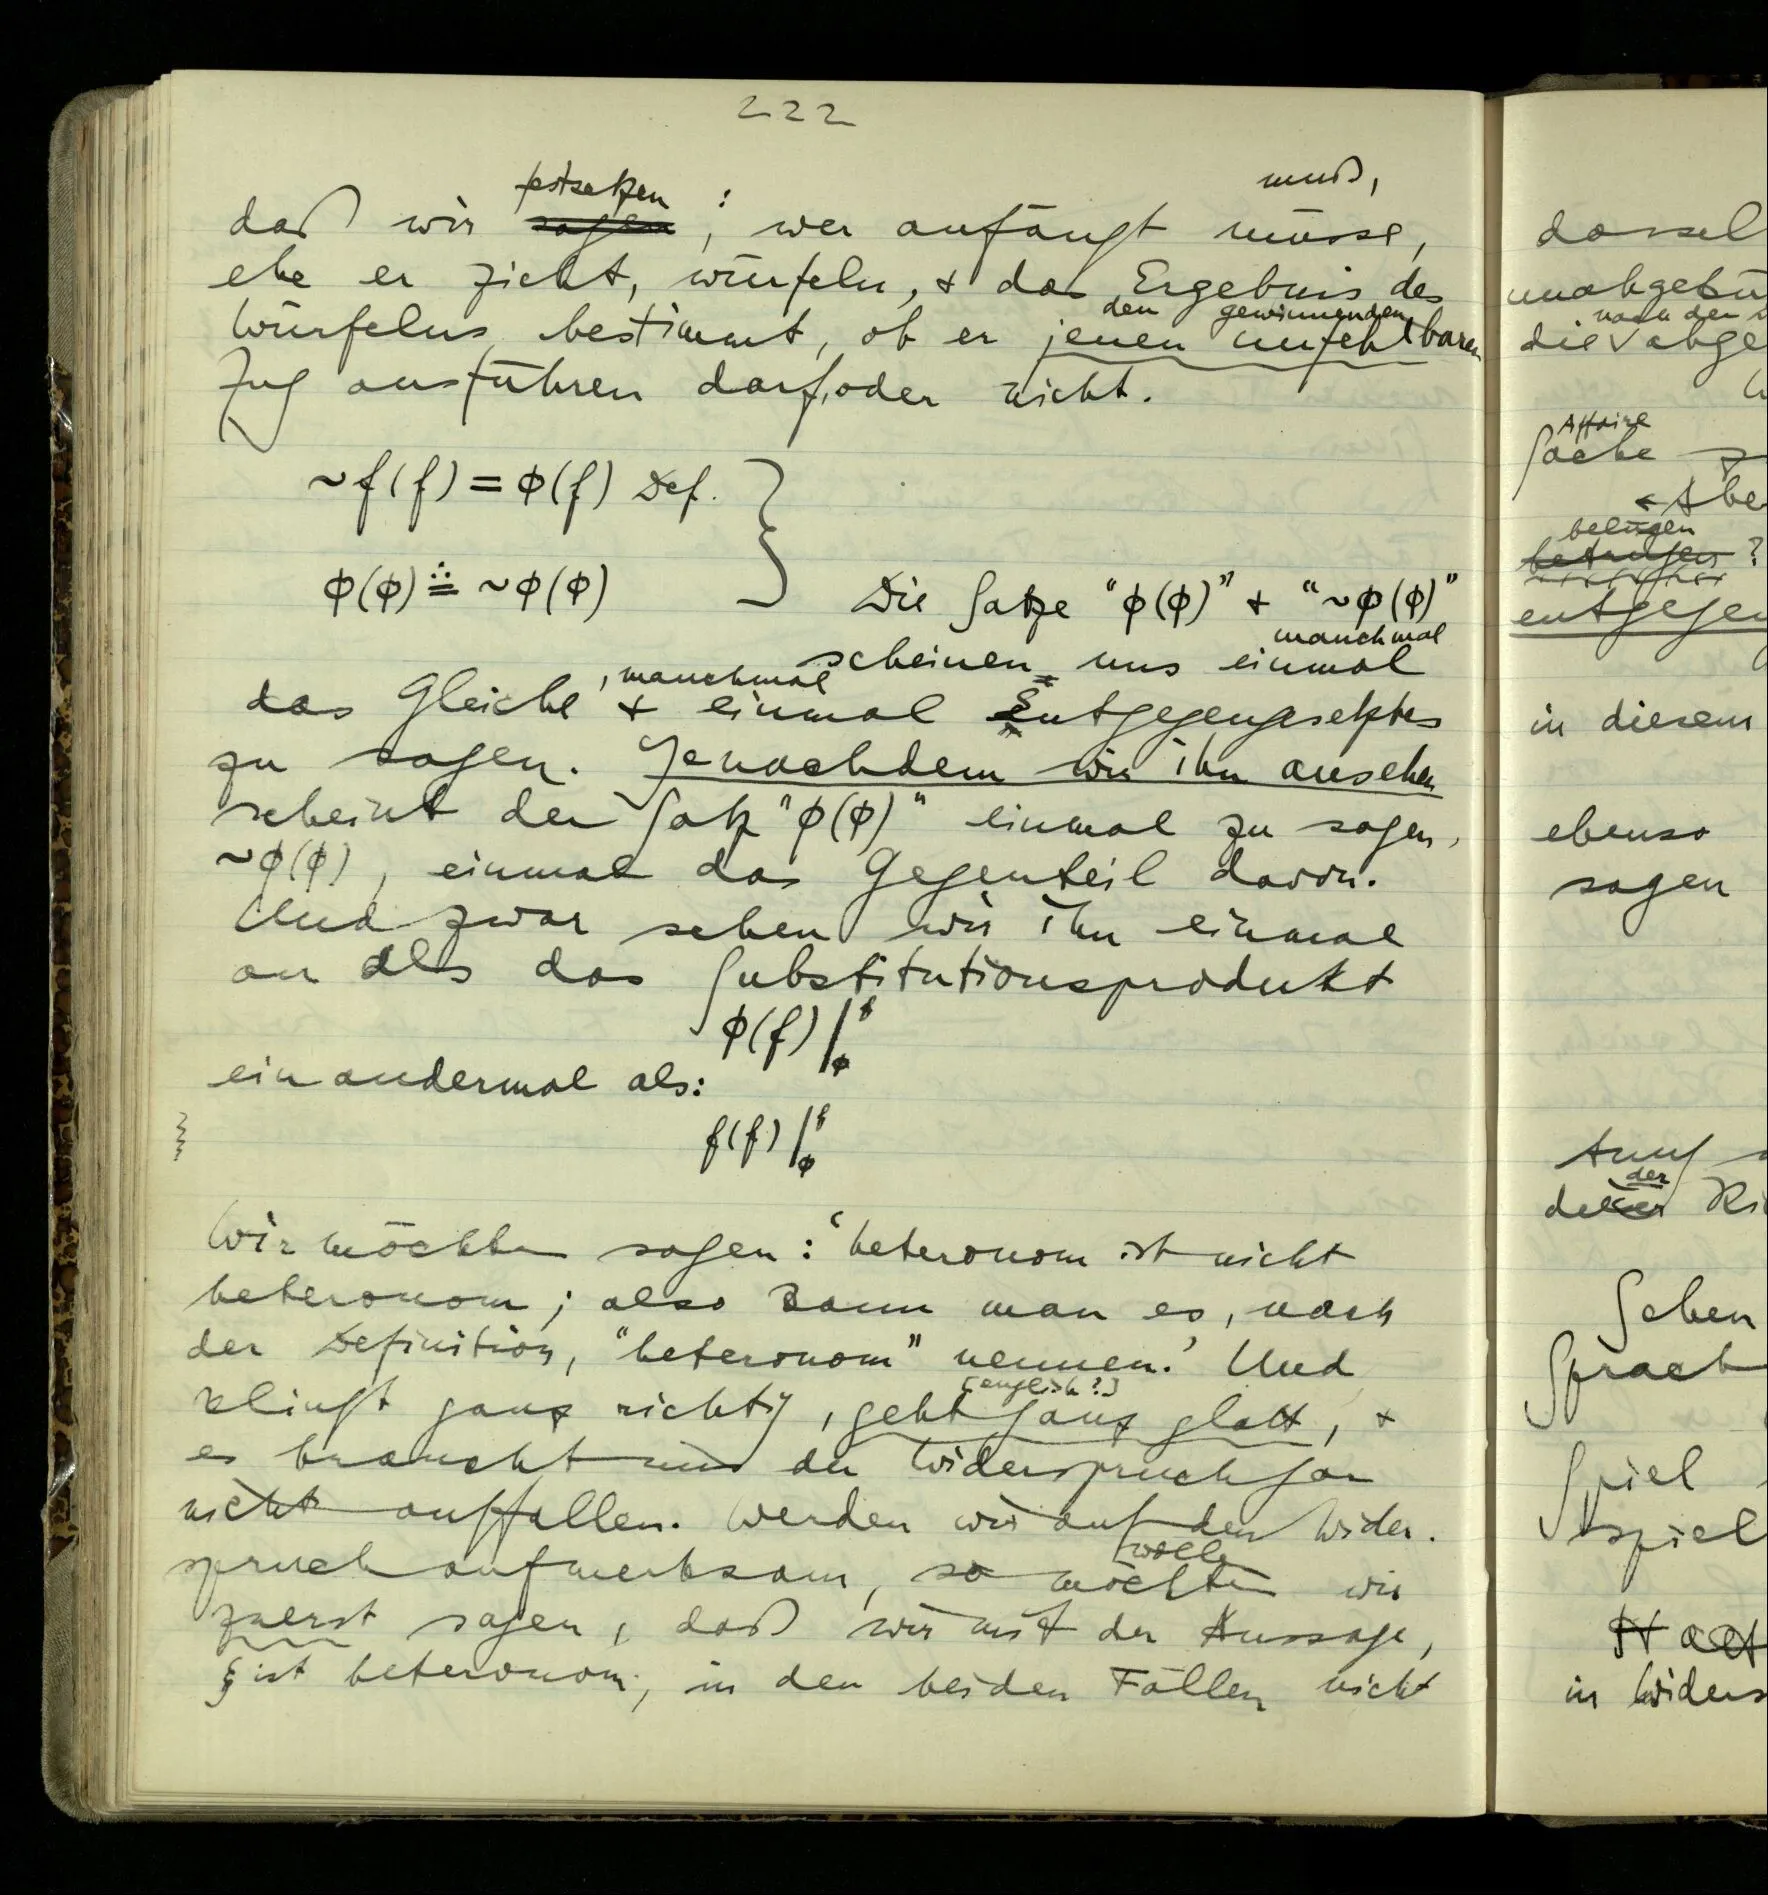 222
festsetzen : muß,
daß wir sagen, wer anfängt müsse,
ehe er zieht, würfeln, & das Ergebnis des
den gewinnenden
Würfelns bestimmt, ob er jenen unfehlbaren
Zug ausführen darf, oder nicht.
~f(f) = φ(f) Def.
φ(φ) ≝ ~φ(φ)
Die Sätze "φ(φ)" & "~φ(φ)"
manchmal
scheinen uns einmal
, manchmal
das Gleiche & einmal Entgegengesetztes
zu sagen. Jenachdem wir ihn ansehen
scheint der Satz "φ(φ)" einmal zu sagen,
~φ(φ), einmal das Gegenteil davon.
Und zwar sehen wir ihn einmal
an als das Substitutionsprodukt
φ(f) |f φ
ein andermal als:
f(f) |f φ
Wir möchten sagen: 'heteronom ist nicht
heteronom; also kann man es, nach
der Definition, "heteronom" nennen.' Und
[englisch?]
klingt ganz richtig, geht ganz glatt, &
es braucht uns der Widerspruch gar
nicht auffallen. Werden wir auf den Wider-
[wollen
spruch aufmerksam, so möchten wir
zuerst sagen, daß wir mit der Aussage,
ξ ist heteronom, in den beiden Fällen nicht
dassel
unabgekü
nach der
die abge
Affaire
Sache
Aber
belügen
betrügen?
entgegen
in diesem
ebenso
sagen
der
dieser
Sehen
Sprach
Spiel
spiel
in Widers